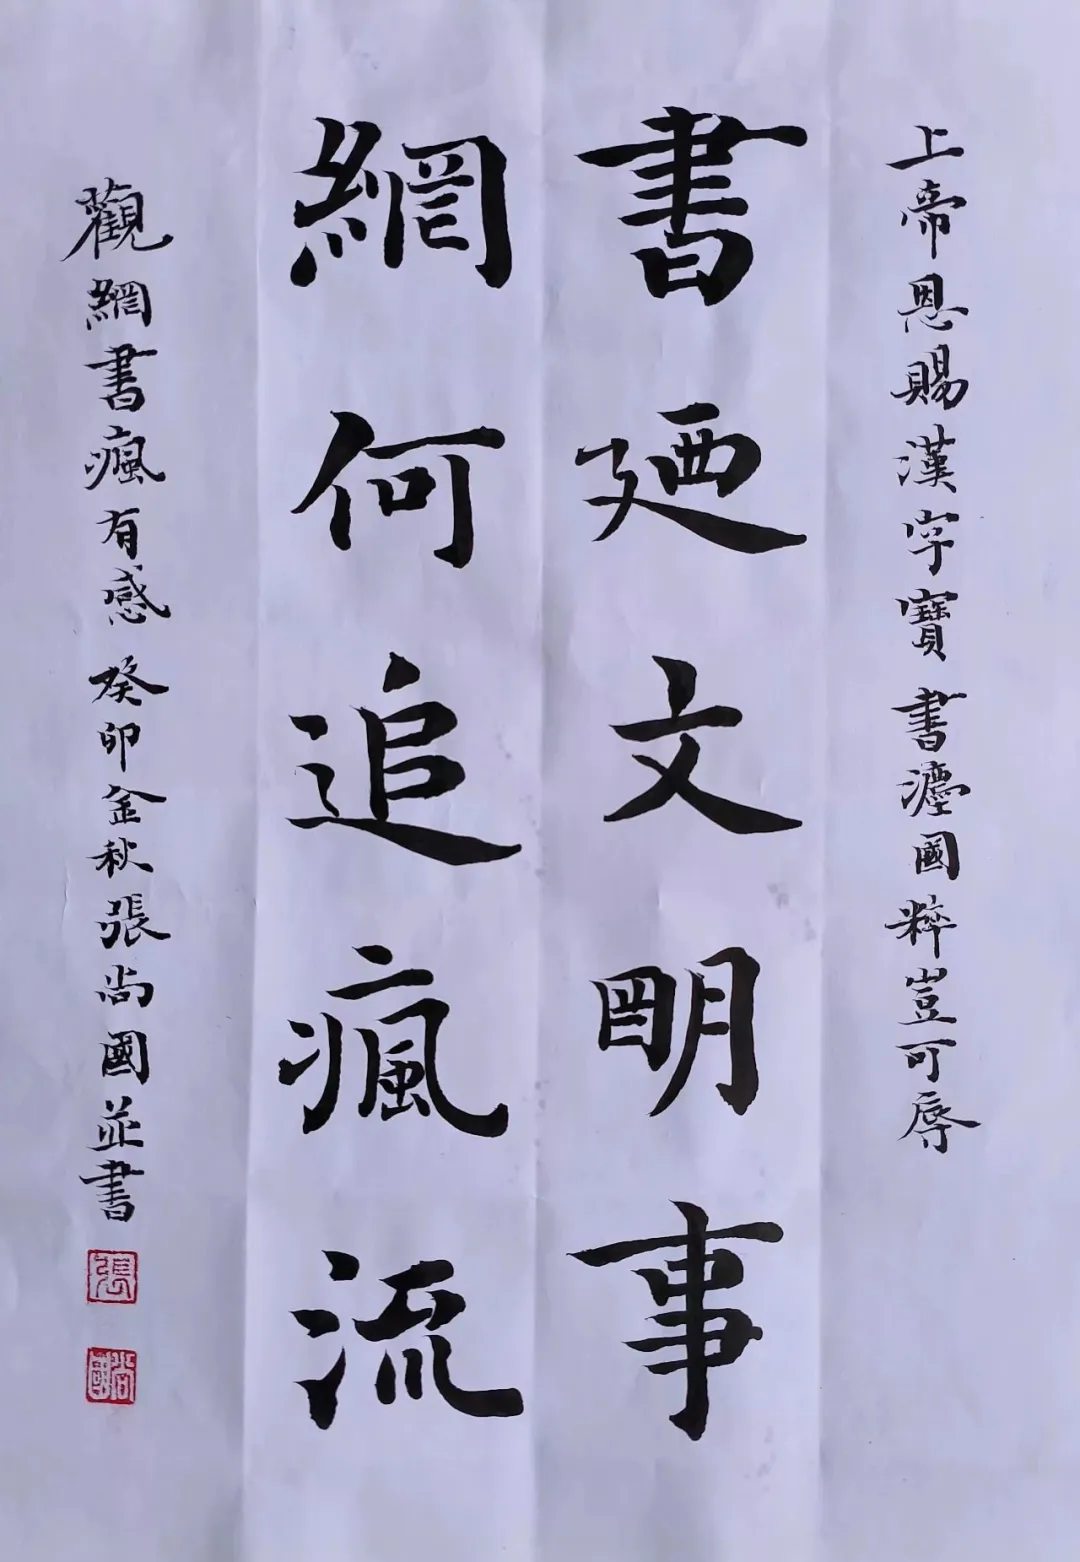 上帝恩賜漢字寶 書灋國粹豈可辱
書廼文朙事
網何追瘋流
觀網書瘋有感 癸卯金秋張尚國並書
張
尚國